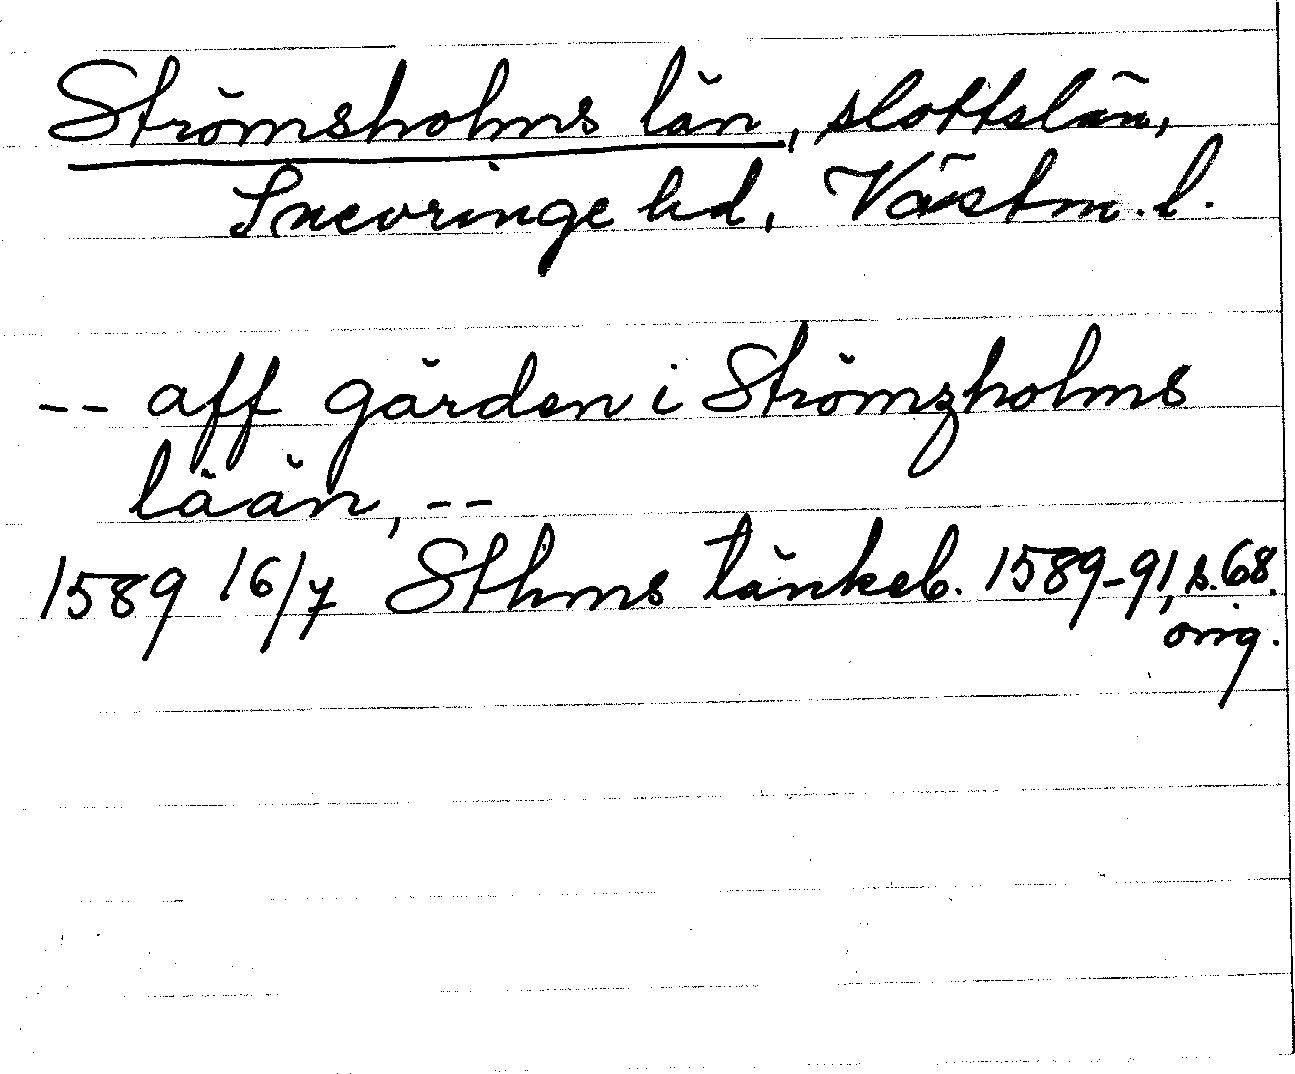 Strömsholms län, slottslän,
Snevringe hd, Västm. l.
-- aff gården i Strömzholms
lään, --
1589 16/7 Sthms tänkeb. 1589-91, s. 68.
orig.